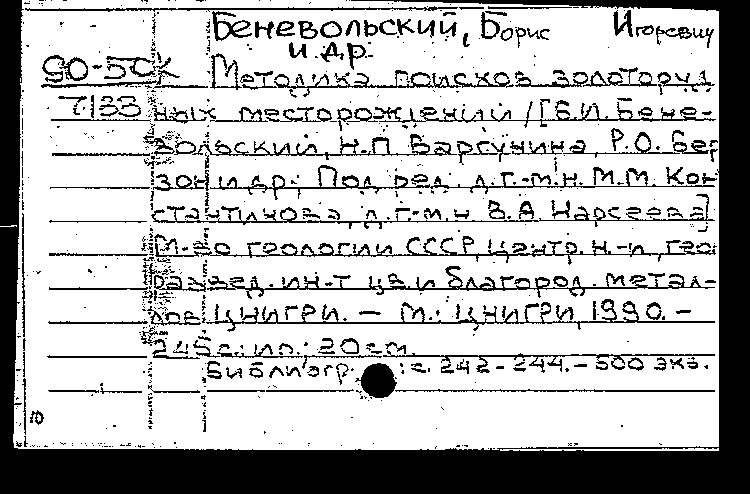 Беневольский, Борис Игоревич
и др.
90-5СК Методика поисков золоторуд
7133 ных месторождений / [Б.И. Бене-
вольский, Н.П. Варгунина, Р.О. Бер
зон и др.; Под ред. д.г.-м.н. М.М. Кон
стантинова, д.г.-м.н. В.А. Нарсеева]
М-во геологии СССР, Центр. н.-и, гео
развед. ин-т цв. и благород. метал-
лов ЦНИГРИ. – М.: ЦНИГРИ, 1990. –
245 с.: ил.; 20 см.
Библиогр. : с. 242-244. – 500 экз.
10